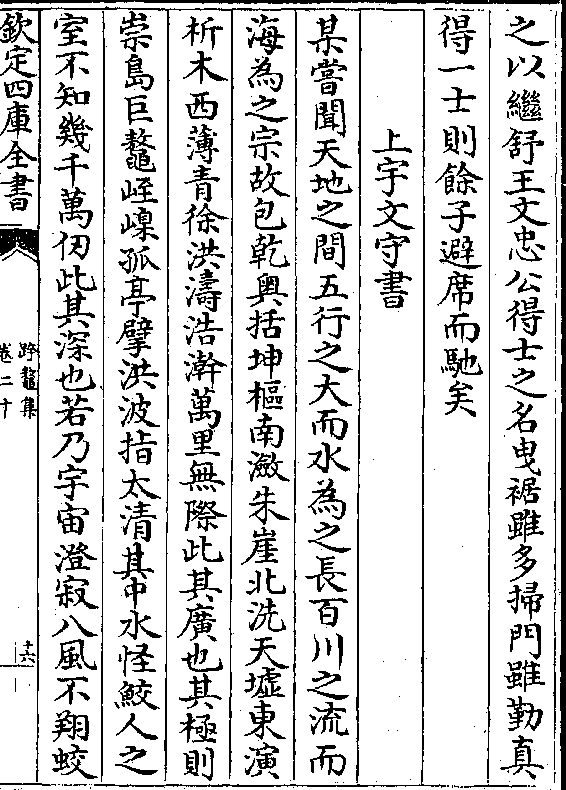 之以繼舒王文忠公得士之名曵裾雖多掃門雖勤真
得一士則餘子避席而馳矣
上宇文守書
某嘗聞天地之間五行之大而水為之長百川之流而
海為之宗故包乾奥括坤樞南澰朱崖北洗天墟東演
析木西薄青徐洪濤浩澣萬里無際此其廣也其極則
崇島巨鼇峌㠔孤亭擘洪波指太清其中水怪鮫人之
室不知幾千萬仞此其深也若乃宇宙澄寂八風不翔蛟
欽定四庫全書
跨鼇集
卷二十
十六